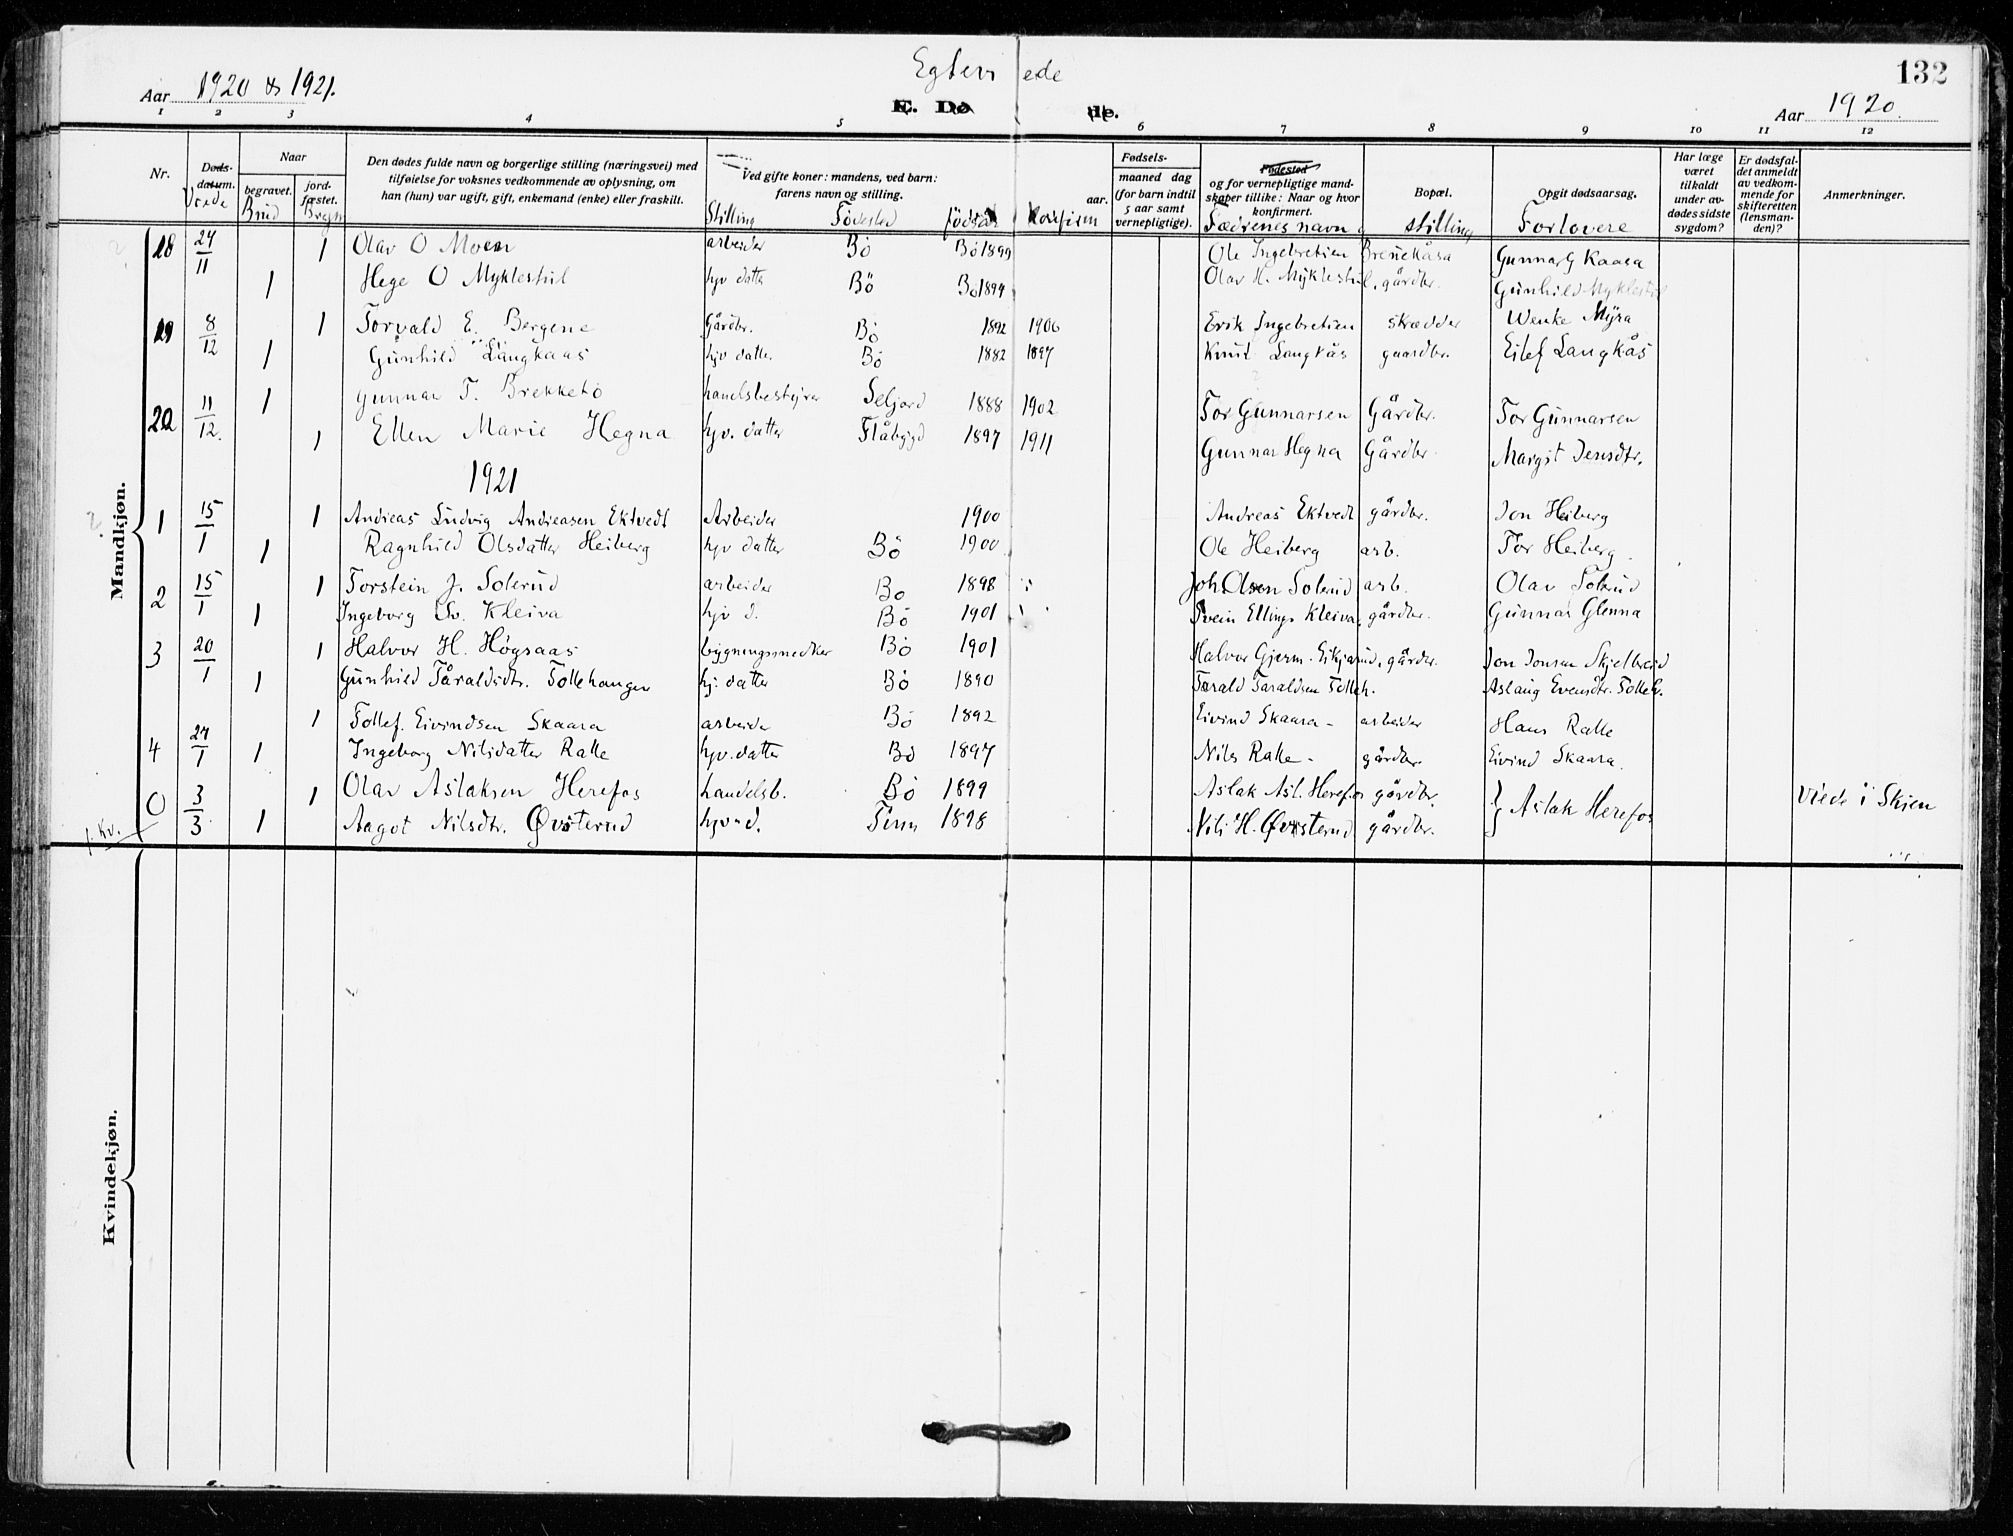 Aar 1920 & 1921.
Egtevi ede
132
E. Dø de.
Aar 1920.
1 2 3 4 5 6 7 8 9 10 11 12
Nr.
Døds-datum. Viede
Naar
begravet. Brud
jord-fæstet. Brgm
Den dødes fulde navn og borgerlige stilling (næringsvei) med tilføielse for voksnes vedkommende av oplysning, om han (hun) var ugift, gift, enkemand (enke) eller fraskilt.
Ved gifte koner: mandens, ved barn: farens navn og stilling.
Stilling Fødested fødtaar Konfirm
Fødsels-
aar. maaned dag
(for barn indtil 5 aar samt vernepligtige).
Fødested
og for vernepligtige mandskaper tillike: Naar og hvor konfirmert.
Fædrenes navn og stilling
Bopæl.
Opgit dødsaarsag.
Forlovere
Har læge været tilkaldt under av-dødes sidste sygdom?
Er dødsfal-det anmeldt av vedkom-mende for skifteretten (lensman-den)?
Anmerkninger.
Mandkjøn.
18 24/11 1 Olav O Moen arbeider Bø Bø 1899 Ole Ingebretsen Brenekåsa Gunnar G Kaasa
1 Hege O Myklestul hjv datter Bø Bø 1894 Olav H. Myklestul, gårdbr. Gunhild Myklestul
19 8/12 1 Torvald E. Bergene Gårdbr. Bø 1892 1906 Erik Ingebretsen skrædder Wenke Myra
1 Gunhild Langkaas hjv datter Bø 1882 1897 Knut Langkås gaardbr. Eilef Langkås
20 11/12. 1 Gunnar T. Brekketo handelsbestyrer Seljord 1888 1902 Tor Gunnarsen Gårdbr. Tor Gunnarsen
1 Ellen Marie Hegna hjv. datter Flåbygd 1897 1911 Gunnar Hegna Gårdbr. Margit Jensdtr.
1921
1 15/1 1 Andreas Ludvig Andreasen Ektvedt Arbeider 1900 Andreas Ektvedt gårdbr. Jon Heiberg
1 Ragnhild Olsdatter Heiberg hjv datter Bø 1900 Ole Heiberg arb. Tor Heiberg.
2 15/1 1 Torstein J. Solerud arbeider Bø 1898 Joh. Olsen Solerud arb. Olav Solerud
1 Ingeborg Sv. Kleiva hjv d. Bø 1901 Svein Ellings Kleiva, gårdbr. Gunnar Glenna
3 20/1 1 Halvor H. Høgsaas bygningssnedker Bø 1901 Halvor Gjerm. Eikjarud, gårdbr. Jon Jonsen Skjelbreid
1 Gunhild Taraldsdtr. Follehaugen hj. datter Bø 1890 Tarald Taraldsen Folleh. Aslaug Evensdtr. Folleh.
4 27/1 1 Tollef. Eivindsen Skaara arbeider Bø 1892 Eivind Skaara - arbeider Hans Ralle
1 Ingeborg Nilsdatter Ralle hjv. datter Bø 1897 Nils Ralle - gårdbr. Eivind Skaara.
0 3/3 1 Olav Aslaksen Herefos handelsb. Bø 1899 Aslak Asl. Herefos gårdbr. } Aslak Herefos Viede i Skien
1. Kv. 1 Aagot Nilsdtr. Øvsterud hjv. d. Tinn 1898 Nils H. Øvsterud gårdbr.
Kvindekjøn.